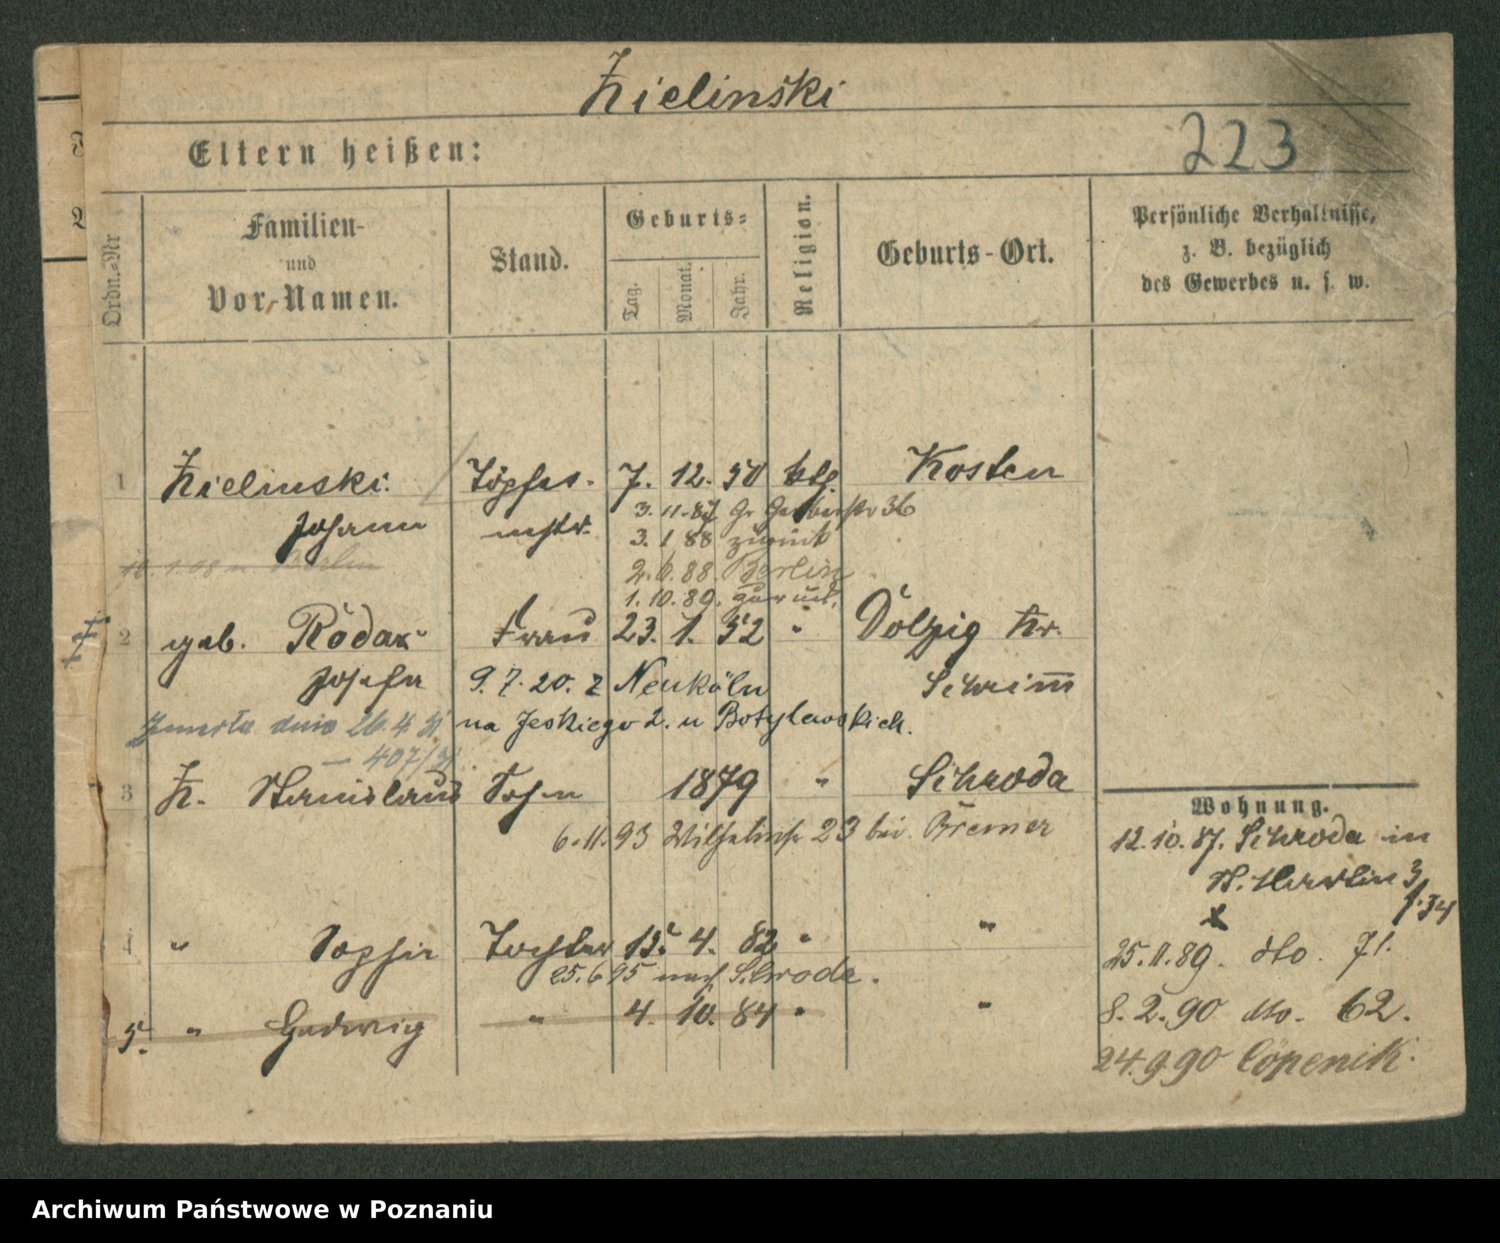 Zielinski
Eltern heißen:
223
Ordn.-Nr
Familien-
und
Vor-Namen.
Stand.
Geburts-
Tag.
Monat.
Jahr.
Religion.
Geburts-Ort.
Persönliche Verhältnisse,
z. B. bezüglich
des Gewerbes u. s. w.
1 Zielinski Töpfer- 7. 12. 50 ktl Kosten
Johann mstr. 3. 11. 87 Gr Gerberstr 36
3. 1 88 zurück
2. 6. 88. Berlin
1. 10. 89. zurück.
2 geb. Rodax Frau 23. 1. 52 " Dolzig Kr.
Josefa 9. 7. 20. z Neuköln Schrimm
Zmarła dnia 26. 4 31 na Jeskiego 2. u Botylewskich.
— 407/31
3 Z. Stanislaus Sohn 1879 " Schroda
6. 11. 93 Wilhelmstr 23 bei Bremer
4 " Sophie Tochter 15. 4. 82 " "
25. 6 95 nach Schroda.
5. " Hedwig " 4. 10. 84 " "
Wohnung.
12. 10. 87. Schroda in
St. Martin 3
25. 11. 89. dto. 71.
8. 2. 90 dto. 62.
24. 9. 90 Cöpenik.
Archiwum Państwowe w Poznaniu